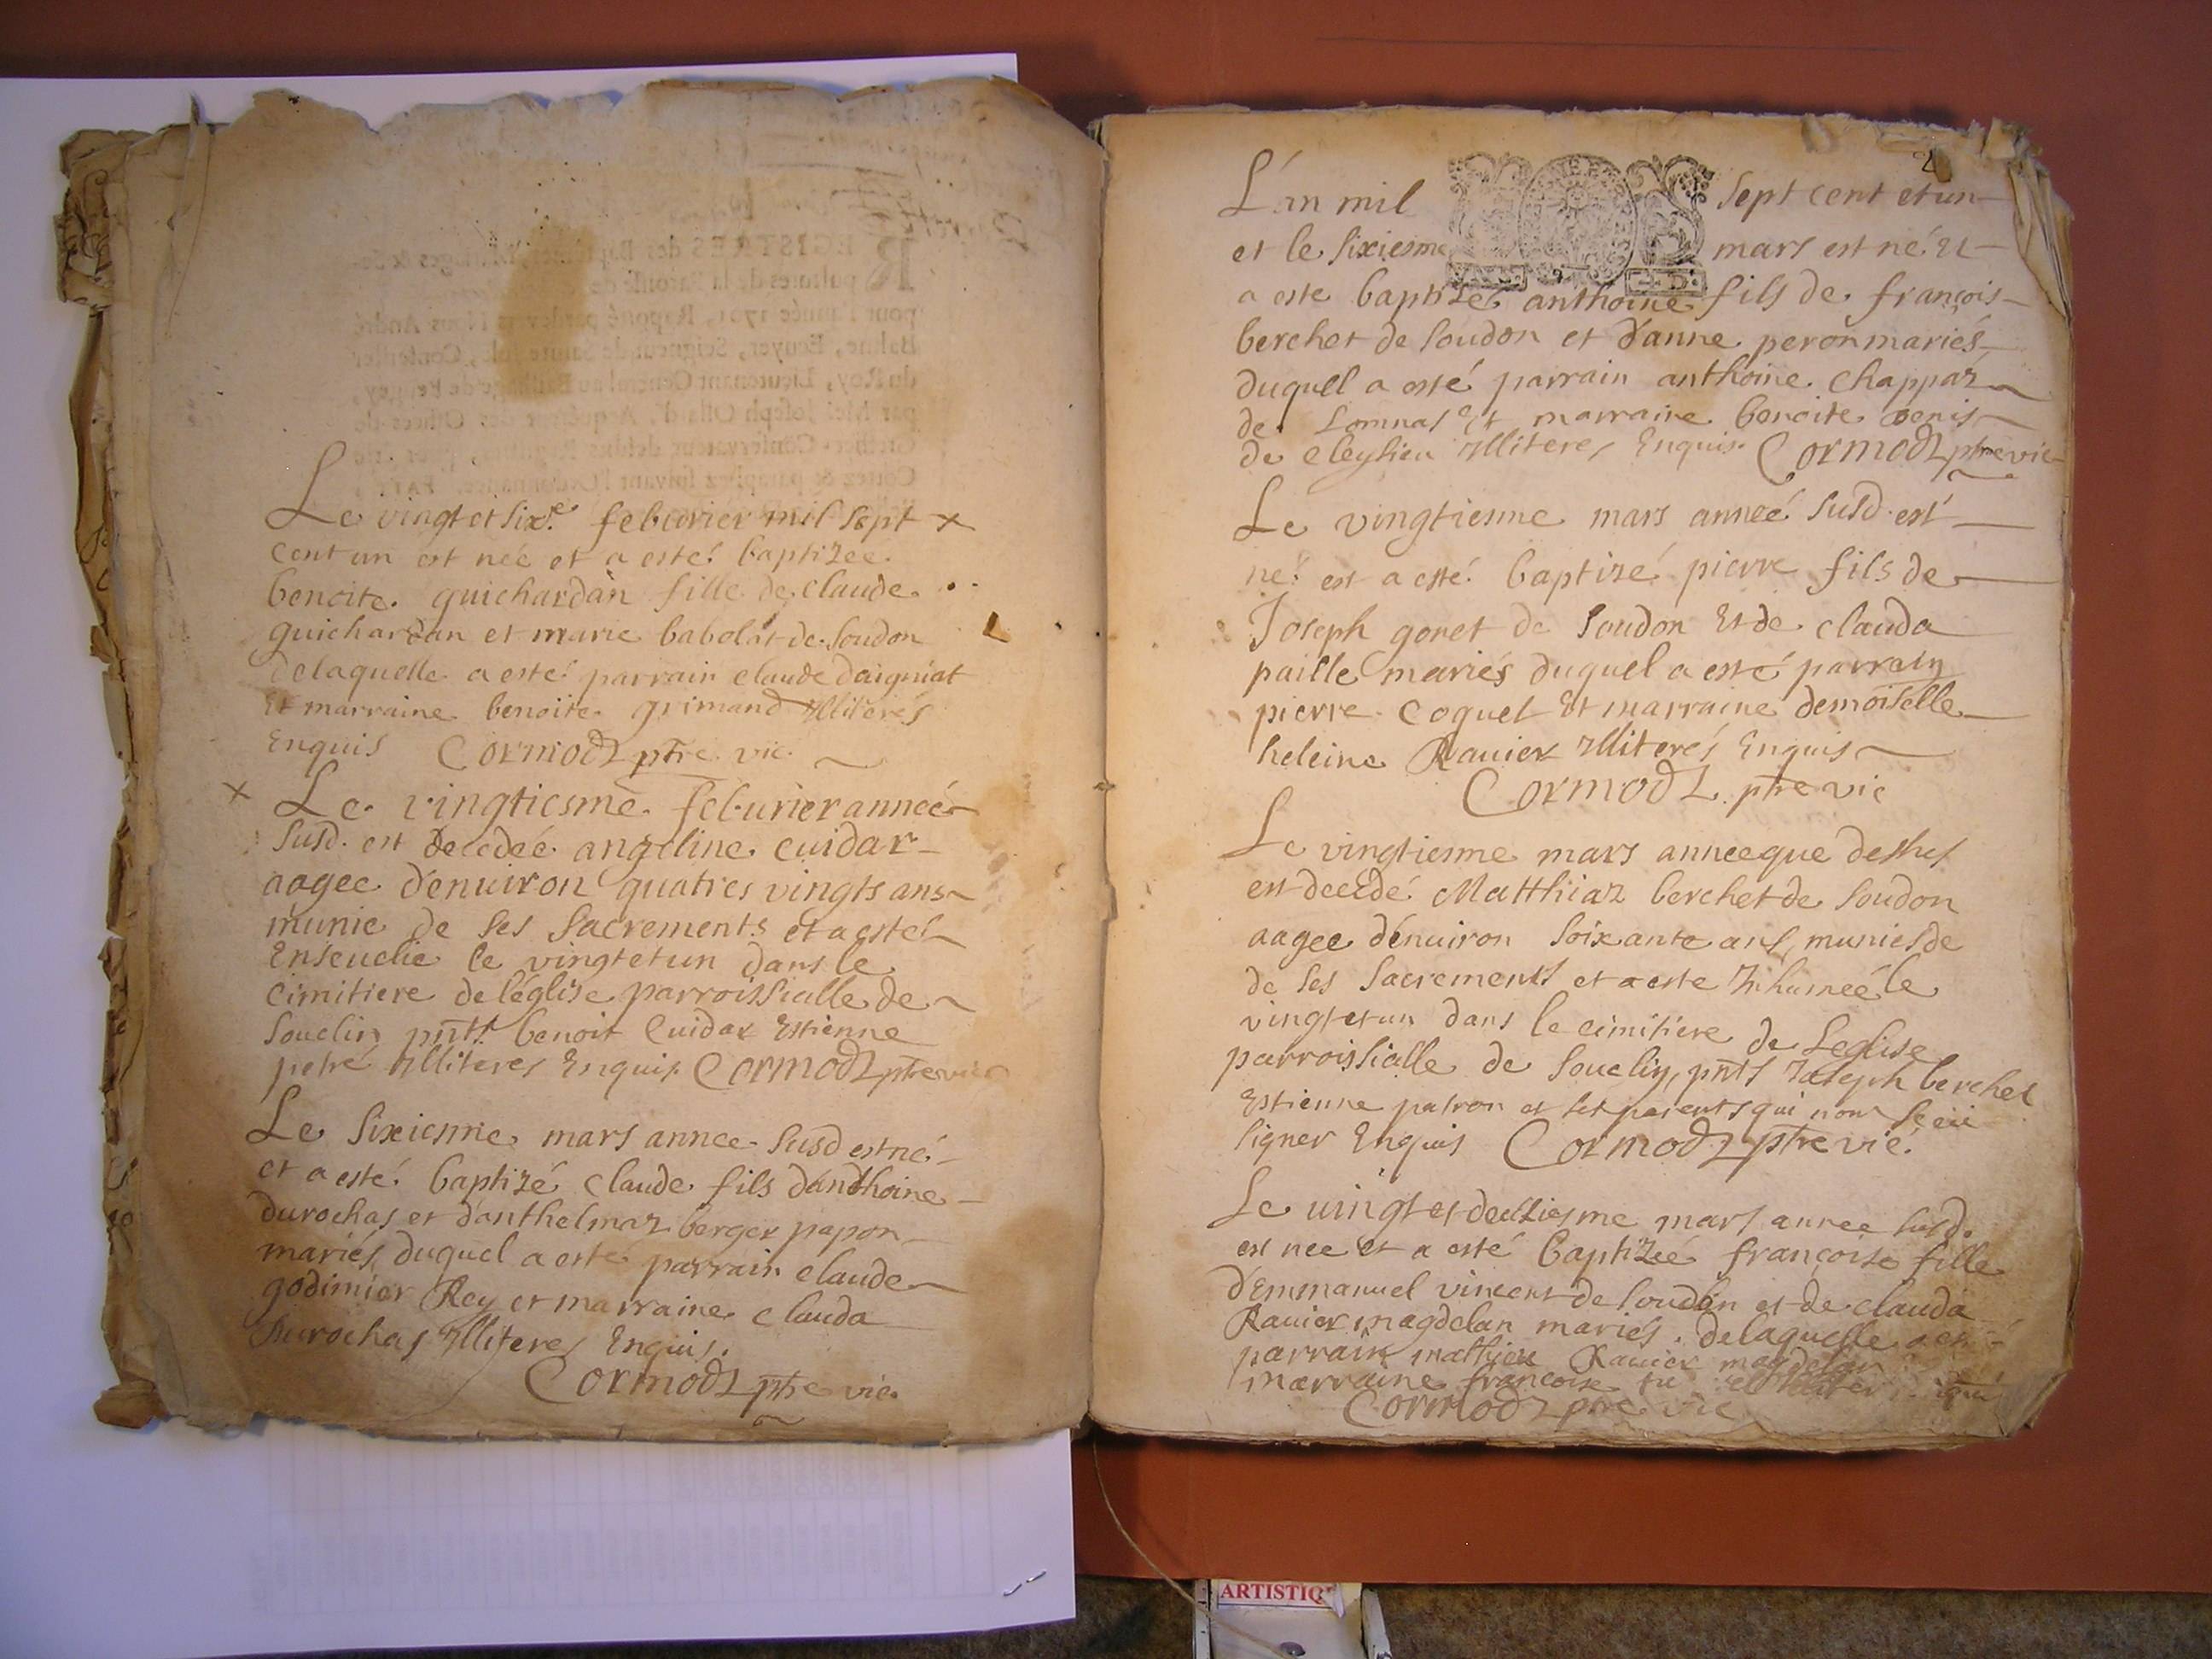 Le vingt et six.e feburier mil sept x
cent un est née et a esté baptizee
benoite guichardan fille de claude
guichardan et marie babolat de soudon
de laquelle a esté parrain claude daigniat
Et marraine benoite grimand Illiterés
Enquis Cormodz ptre vic
x Le vingtiesme feburier anneé
susd. est decedeé angeline cuidar
aagee d'enuiron quatres vingts ans
munie de ses sacrements et a esté
Enseuelie le vingt et un dans le
cimitiere de l'église parroissialle de
souclin pnts benoit Cuidar Estienne
petre Illiteres Enquis Cormodz ptre vic
Le sixiesme mars annee susd est né
et a esté baptizé claude fils danthoine
durochas et danthelmaz berger papon
mariés duquel a esté parrain claude
godimier Rey et marraine clauda
durochas Illiteres Enquis.
Cormodz ptre vic.
2
L'an mil sept cent et un
et le sixiesme mars est né Et
a este baptizé anthoine fils de françois
berchet de soudon et d'anne peron mariés
duquel a esté parrain anthoine chappaz
de Lomnas Et marraine benoite denis
de cleyzieu Illiteres Enquis Cormodz ptre vic
Le vingtienme mars anneé susd. est
né est a esté baptizé pierre fils de
Joseph gonet de soudon Et de clauda
paille mariés duquel a esté parrain
pierre coquet Et marraine demoiselle
heleine Rauier Illiterés Enquis
Cormodz ptre vic
Le vingtienme mars annee que dessus
est decedé Matthiaz berchet de soudon
aagee d'enuiron soixante ans, munies de
de ses sacrements et a este Inhumeé le
vingt et un dans le cimitiere de Leglise
parroissialle de souclin, pnts Joseph berchet
Estienne patron et ses parents qui nont sceu
signer Enquis Cormodz ptre vic.
Le uingt et deuziesme mars annee susd.
est nee et a esté baptizeé françoise fille
d'Emmanuel vincent de soudon et de clauda
Rauier magdelan mariés. de laquelle a esté
parrain mathieu Rauier magdelan
marraine francoise
Cormodz ptre vic
ARTISTIQ